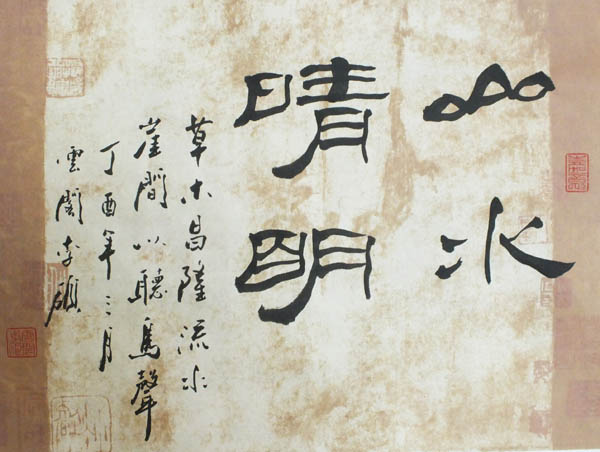 山水
晴明
草木昌隆流水
崖間以聽鳥聲
丁酉年三月
雲閣李碩